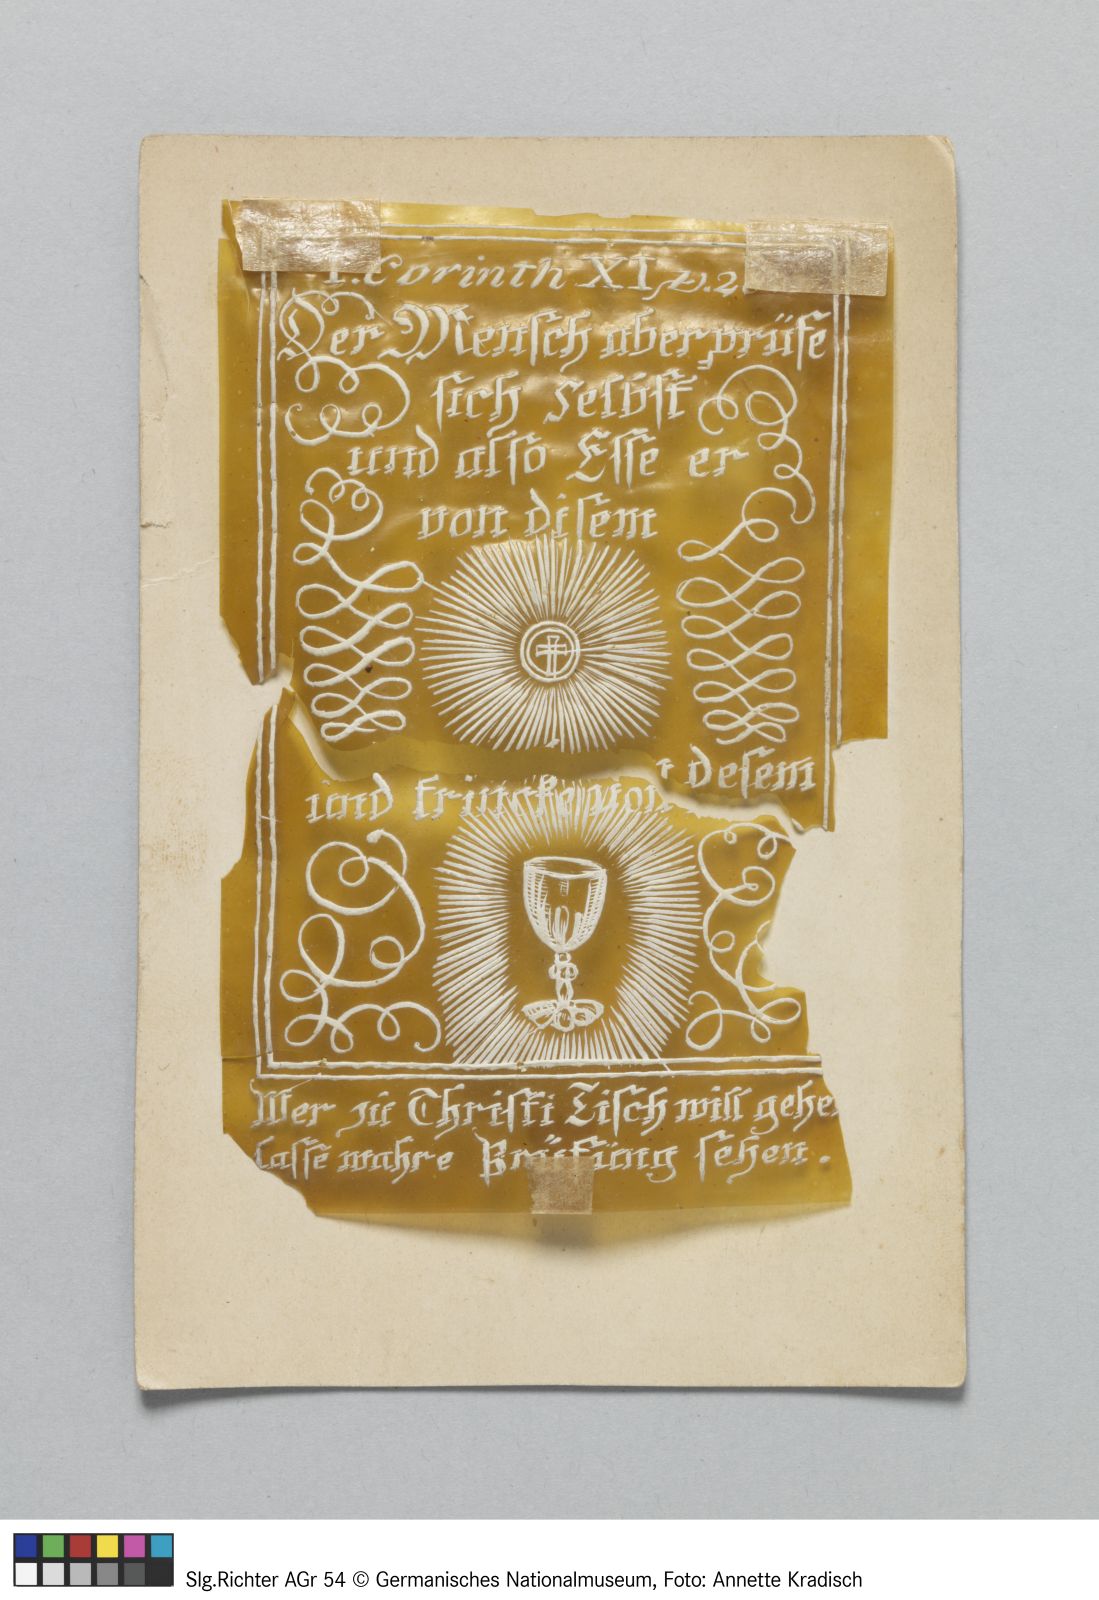 1. Corinth XI, v. 2
Der Mensch aber prüfe
sich selbst
und also Esse er
von disem
und trincke von desem
Wer zu Christi Tisch will gehe
Lasse wahre Prüfung sehen.
Slg.Richter AGr 54 © Germanisches Nationalmuseum, Foto: Annette Kradisch